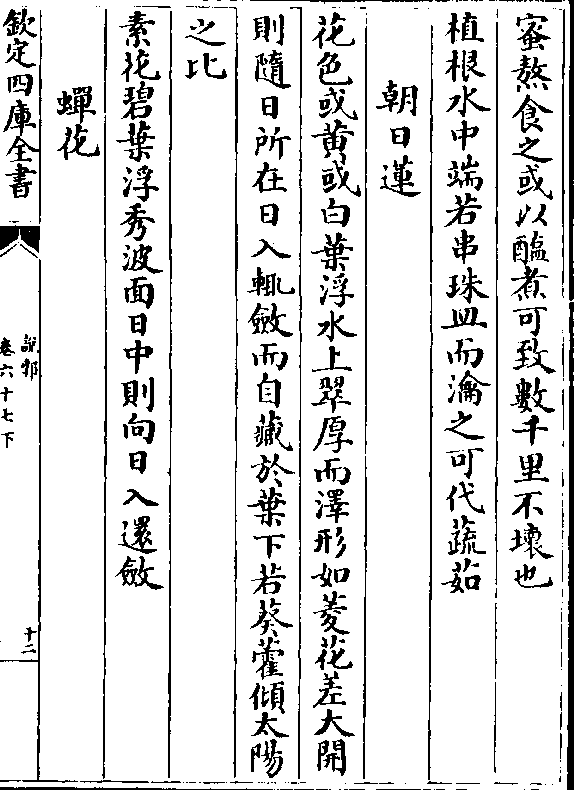 蜜熬食之或以醢煮可致數千里不壞也
植根水中端若串珠皿而瀹之可代蔬茹
朝日蓮
花色或黄或白葉浮水上翠厚而澤形如菱花差大開
則隨日所在日入輒斂而自藏於葉下若葵藿傾太陽
之比
素花碧葉浮秀波面日中則向日入還斂
蟬花
欽定四庫全書
說郛
卷六十七下
十二